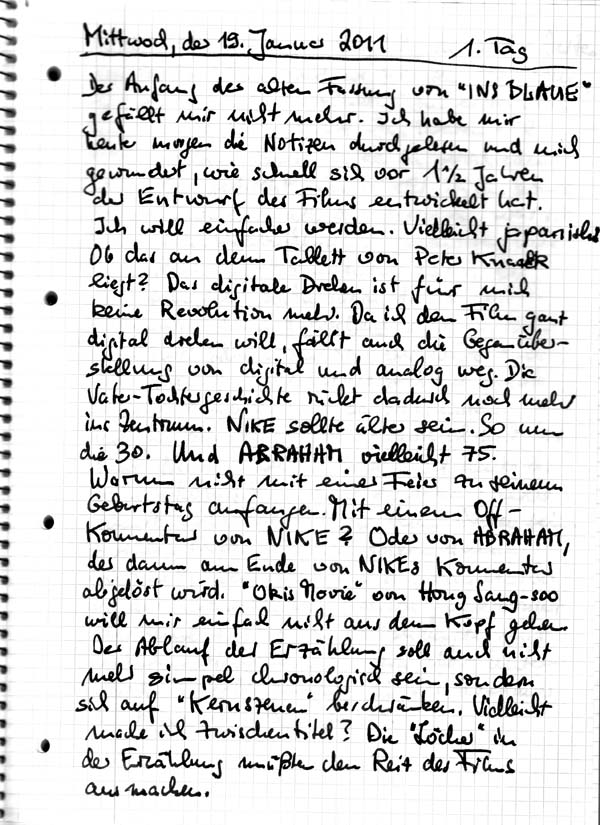 Mittwoch, der 19. Januar 2011 1. Tag
Der Anfang der alten Fassung von "INS BLAUE"
gefällt mir nicht mehr. Ich habe mir
heute morgen die Notizen durchgelesen und mich
gewundert, wie schnell sich vor 1 1/2 Jahren
der Entwurf des Films entwickelt hat.
Ich will einfacher werden. Vielleicht japanischer
Ob das an dem Tablett von Peter
liegt? Das digitale Drehen ist für mich
keine Revolution mehr. Da ich den Film ganz
digital drehen will, fällt auch die Gegenüber-
stellung von digital und analog weg. Die
Vater-Tochtergeschichte rückt dadurch noch mehr
ins Zentrum. NIKE sollte älter sein. So um
die 30. Und ABRAHAM vielleicht 75.
Warum nicht mit einer Feier zu seinem
Geburtstag anfangen. Mit einem Off-
Kommentar von NIKE? Oder von ABRAHAM,
der dann am Ende von NIKEs Kommentar
abgelöst wird. "Okis Movie" von Hong Sang-soo
will mir einfach nicht aus dem Kopf gehen.
Der Ablauf der Erzählung soll auch nicht
mehr simpel chronologisch sein, sondern
sich auf "Kernszenen" beschränken. Vielleicht
mache ich Zwischentitel? Die "Löcher" in
der Erzählung müßten den Reiz des Films
ausmachen.